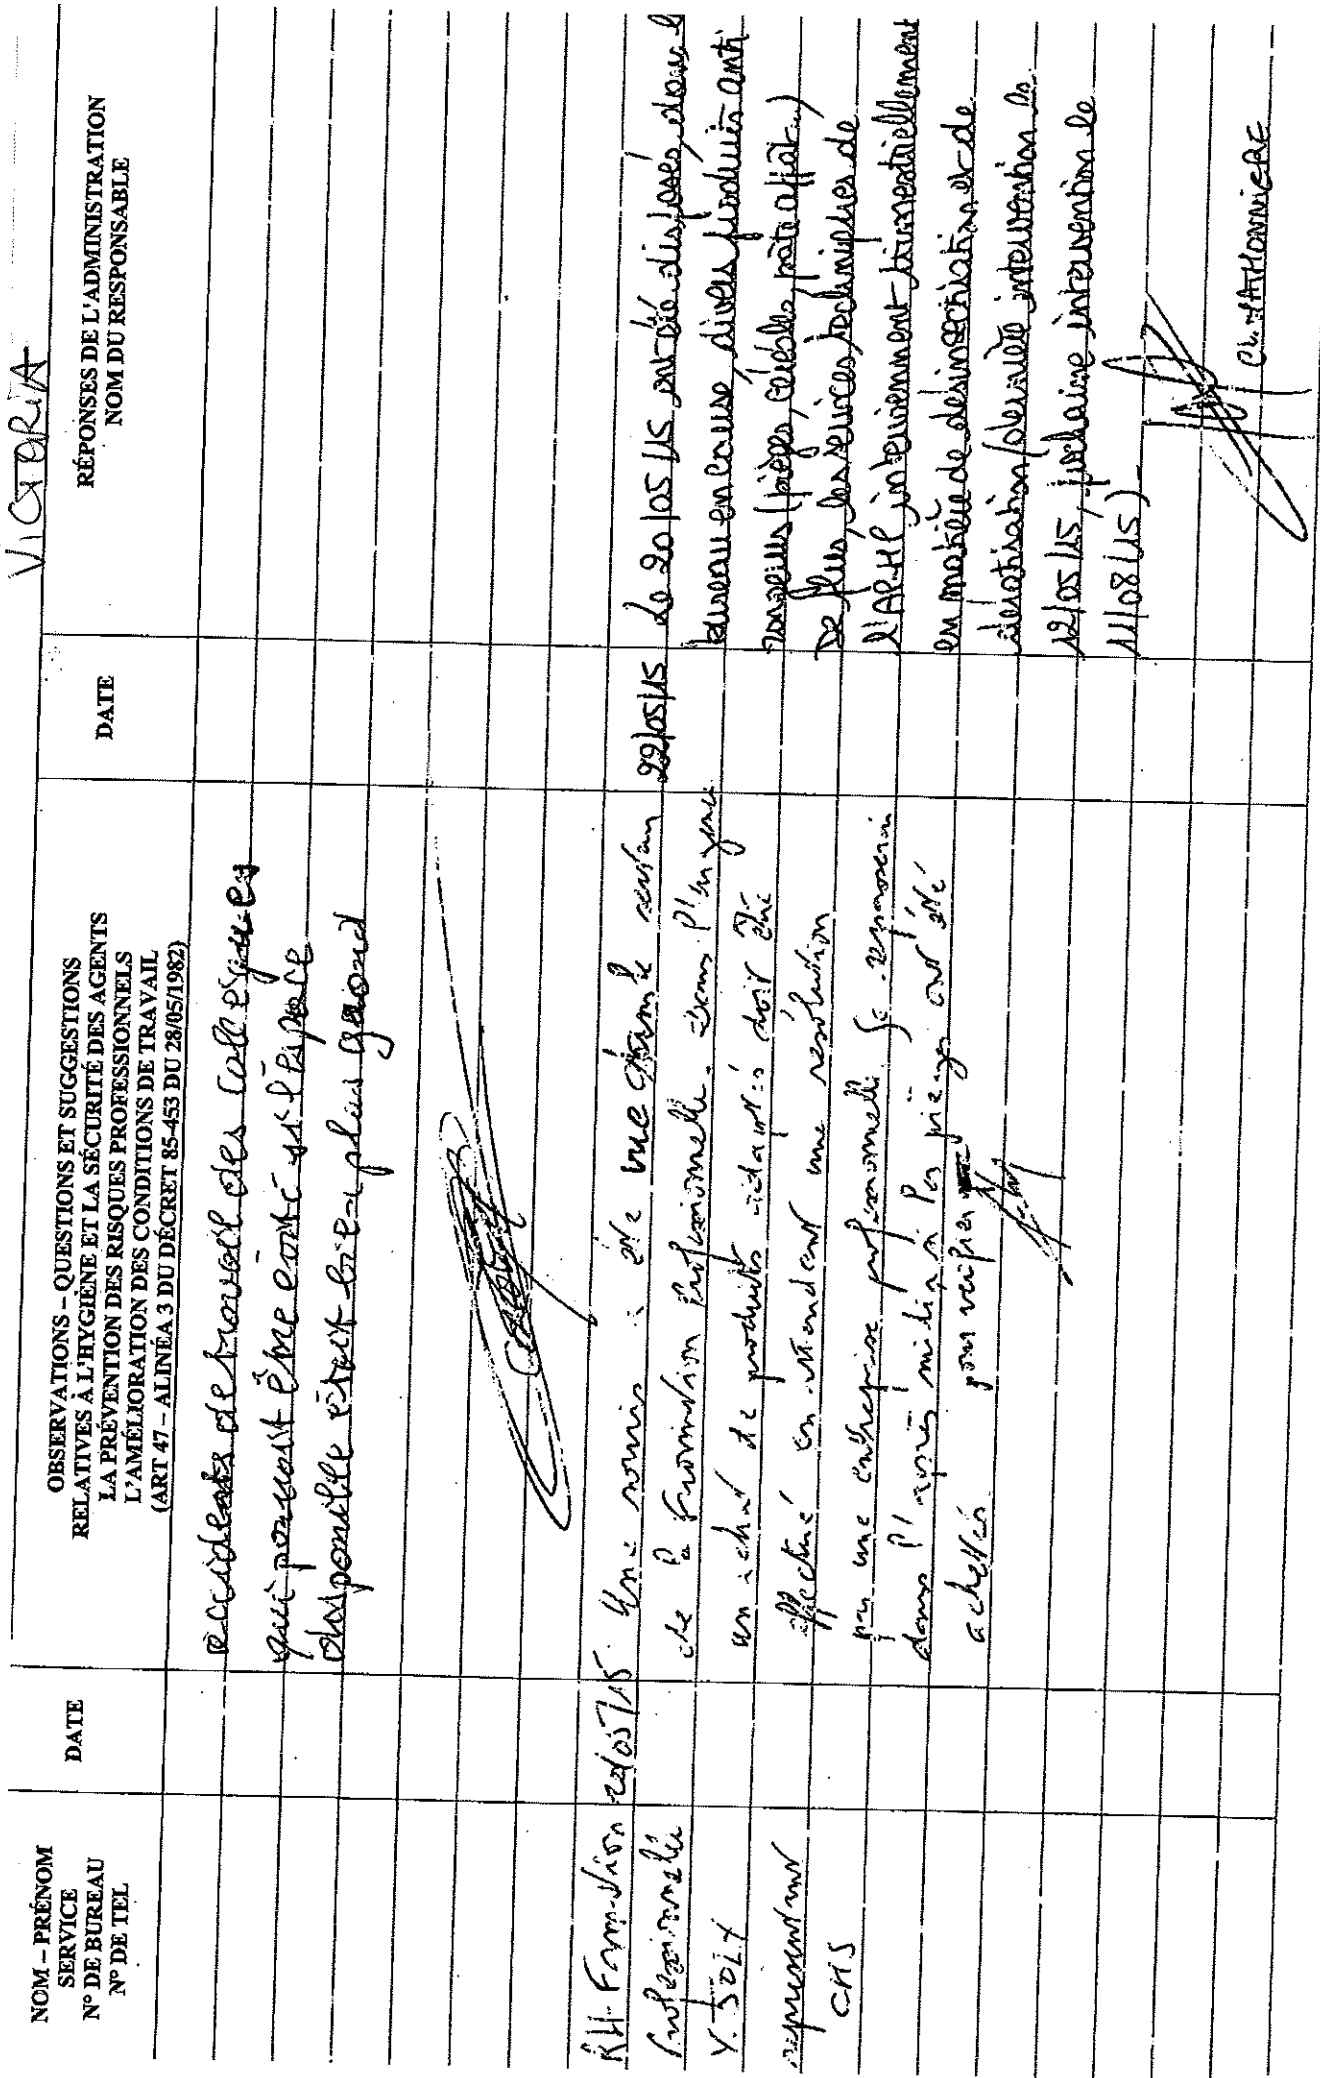 VICTORIA
NOM – PRÉNOM
SERVICE
N° DE BUREAU
N° DE TEL
DATE
OBSERVATIONS – QUESTIONS ET SUGGESTIONS
RELATIVES À L'HYGIÈNE ET LA SÉCURITÉ DES AGENTS
LA PRÉVENTION DES RISQUES PROFESSIONNELS
L'AMÉLIORATION DES CONDITIONS DE TRAVAIL
(ART 47 – ALINÉA 3 DU DÉCRET 85-453 DU 28/05/1982)
DATE
RÉPONSES DE L'ADMINISTRATION
NOM DU RESPONSABLE
accidents de travail des collegues
qui pouvait être évité si l'espace
disponible etait bien plus grand
RH-Formation
Professionnelle
Y. JOLY
représentant
CHS
20/05/15
Une souris a été vue dans le
de la Formation Professionnelle. Dans l'urgence
un achat de produits adaptés doit être
effectué en attendant une résolution
par une entreprise professionnelle. Je repasserai
dans l'après midi si les pièges ont été
achetés pour vérifier
22/05/15
Le 20/05/15 ont été disposés, dans le
bureau en cause, divers produits anti
rongeurs (pièges, céréales, pâte appât)
De plus, les services techniques de
l'AP-HP interviennent trimestriellement
en matière de désinsectisation et de
dératisation (dernière intervention le
12/05/15, prochaine intervention le
11/08/15)